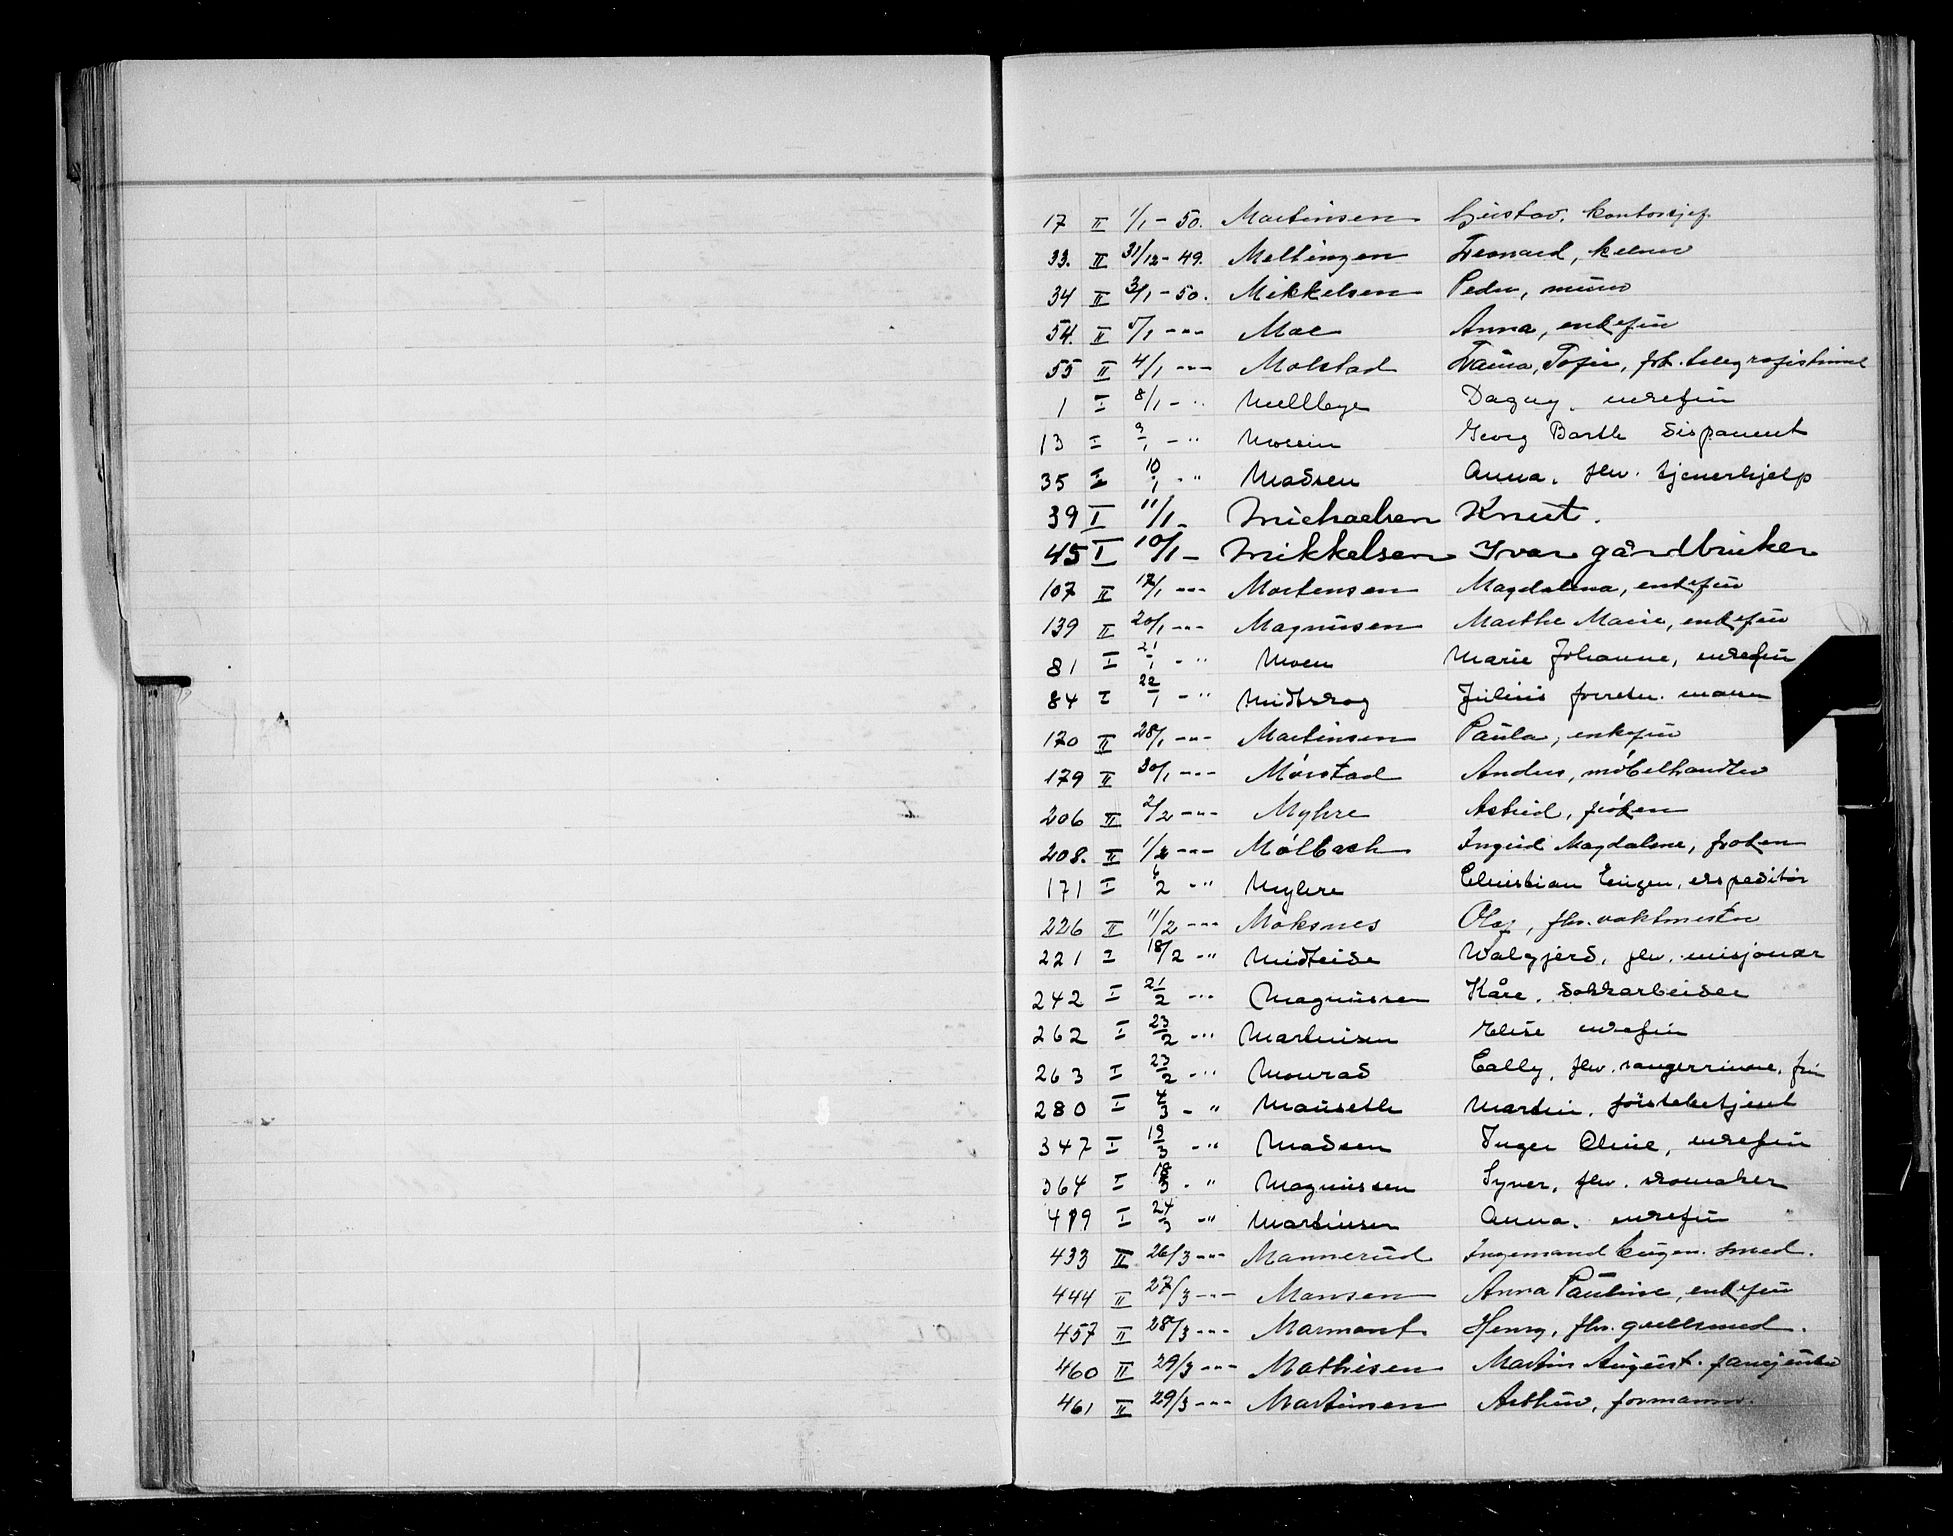 17 II 1/1 - 50. Martinsen Gustav. kontorsjef.
33. II 31/12 - 49. Meltingen Leonard, kelner
34 II 3/1 - 50. Mikkelsen Peder, murer
54. II 5/1 - " - Moe Anna, enkefru
55 II 4/1 - " - Molstad Laura, fhv. telegrafistinne
1 I 8/1 - " Mellbye Dagny. enkefru
13 I 9/1 - " Georg Barth disponent
35 I 10/1 - " Madsen Anna. fhv. hjelp
39 I 11/1 - Michaelsen Knut.
45 I 10/1 - Mikkelsen Ivar gårdbruker
107 II 17/1 - " - Mortensen Magdalena, enkefru
139 II 20/1 - " - Magnusen Marthe Marie, enkefru
81 I 21/1 - " Moen Marie Johanne, enkefru
84 I 22/1 - " Midtskog Julius forretn. mann
170 II 28/1 - " - Martinsen Paula, enkefru
179 II 30/1 - " - Mørstad Anders, møbelhandler
206 II 2/2 - " - Myhre Astrid, frøken
208. II 1/2 - " - Mølbach Ingrid Magdalene, frøken
171 I 6/2 - " Myhre Christian Eugen, ekspeditør
226 II 11/2 - " - Moksnes Olaf, fhv. vaktmester
221 I 18/2 - " Midteide Valgjerd, fhv. misjonær
242 I 21/2 - " Magnussen Kåre. dokkarbeider
262 I 23/2 - " Martinsen Elise enkefru
263 I 23/2 - " Monrad Cally, fhv. sangerinne, fru
280 I 4/3 - " Mauseth Martin. førstebetjent
347 I 19/3 - " Madsen Inger Oline, enkefru
364 I 18/3 - " Magnussen Syver, fhv. skomaker
419 I 24/3 - " Martinsen Anna. enkefru
433 II 26/3 - " - Mannerud Ingemand Eugen. smed.
444 II 27/3 - " - Monsen Anna Pauline, enkefru
457 II 28/3 - " - Marmont Henry, fhv. gullsmed.
460 II 29/3 - " - Mathisen Martin August.
461 II 29/3 - " - Martinsen Arthur, formann.